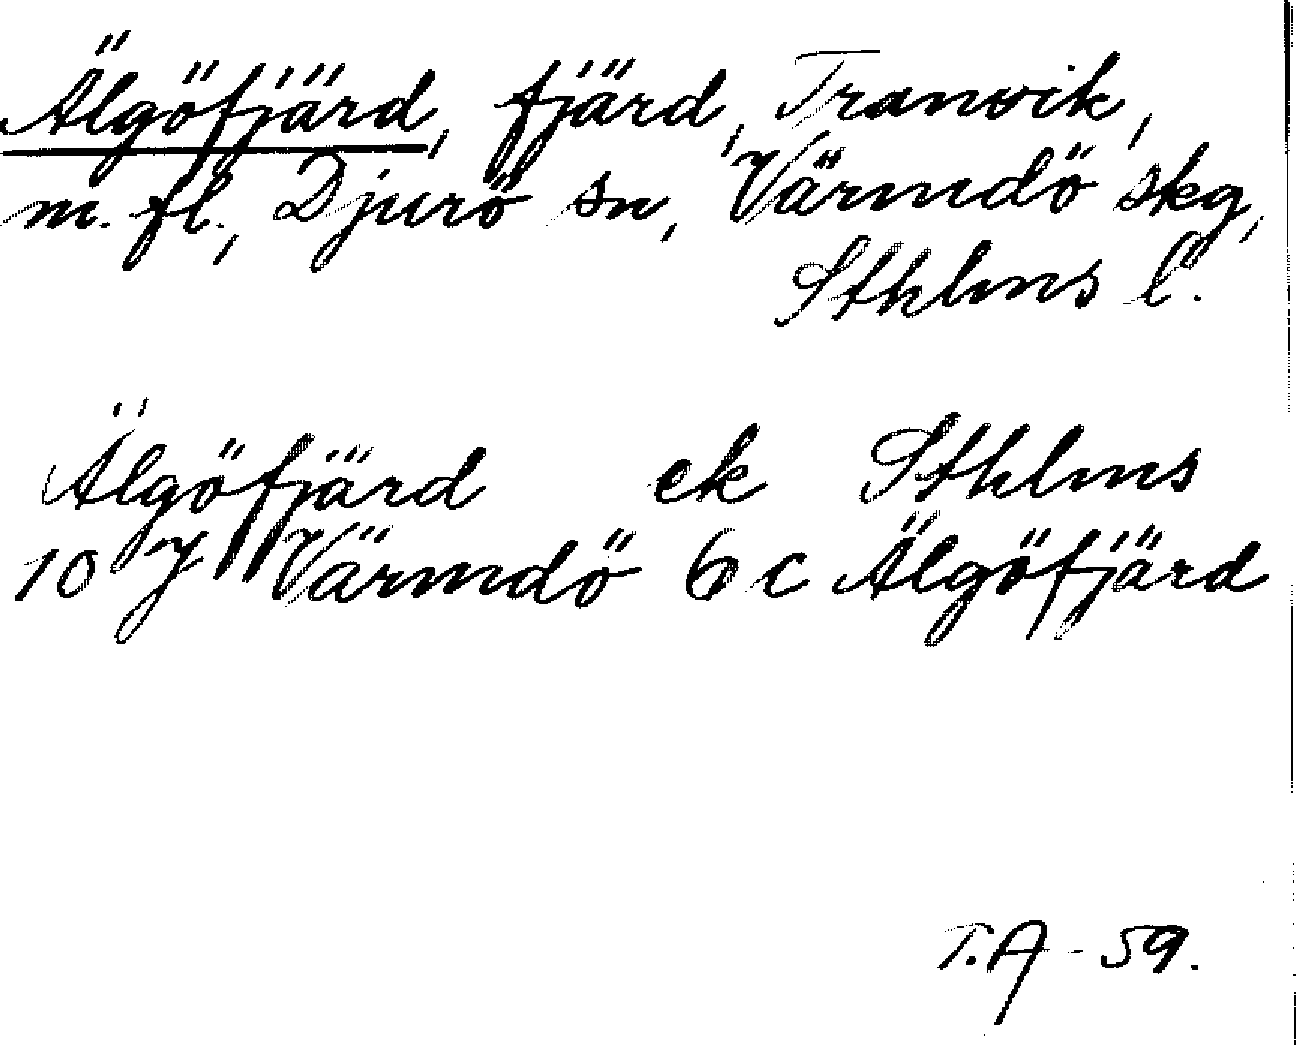 Älgöfjärd, fjärd, Tranvik,
m. fl., Djurö sn, Värmdö skg,
Sthlms l.
Älgöfjärd ek Sthlms
10 J Värmdö 6 c Älgöfjärd
T.A - 59.